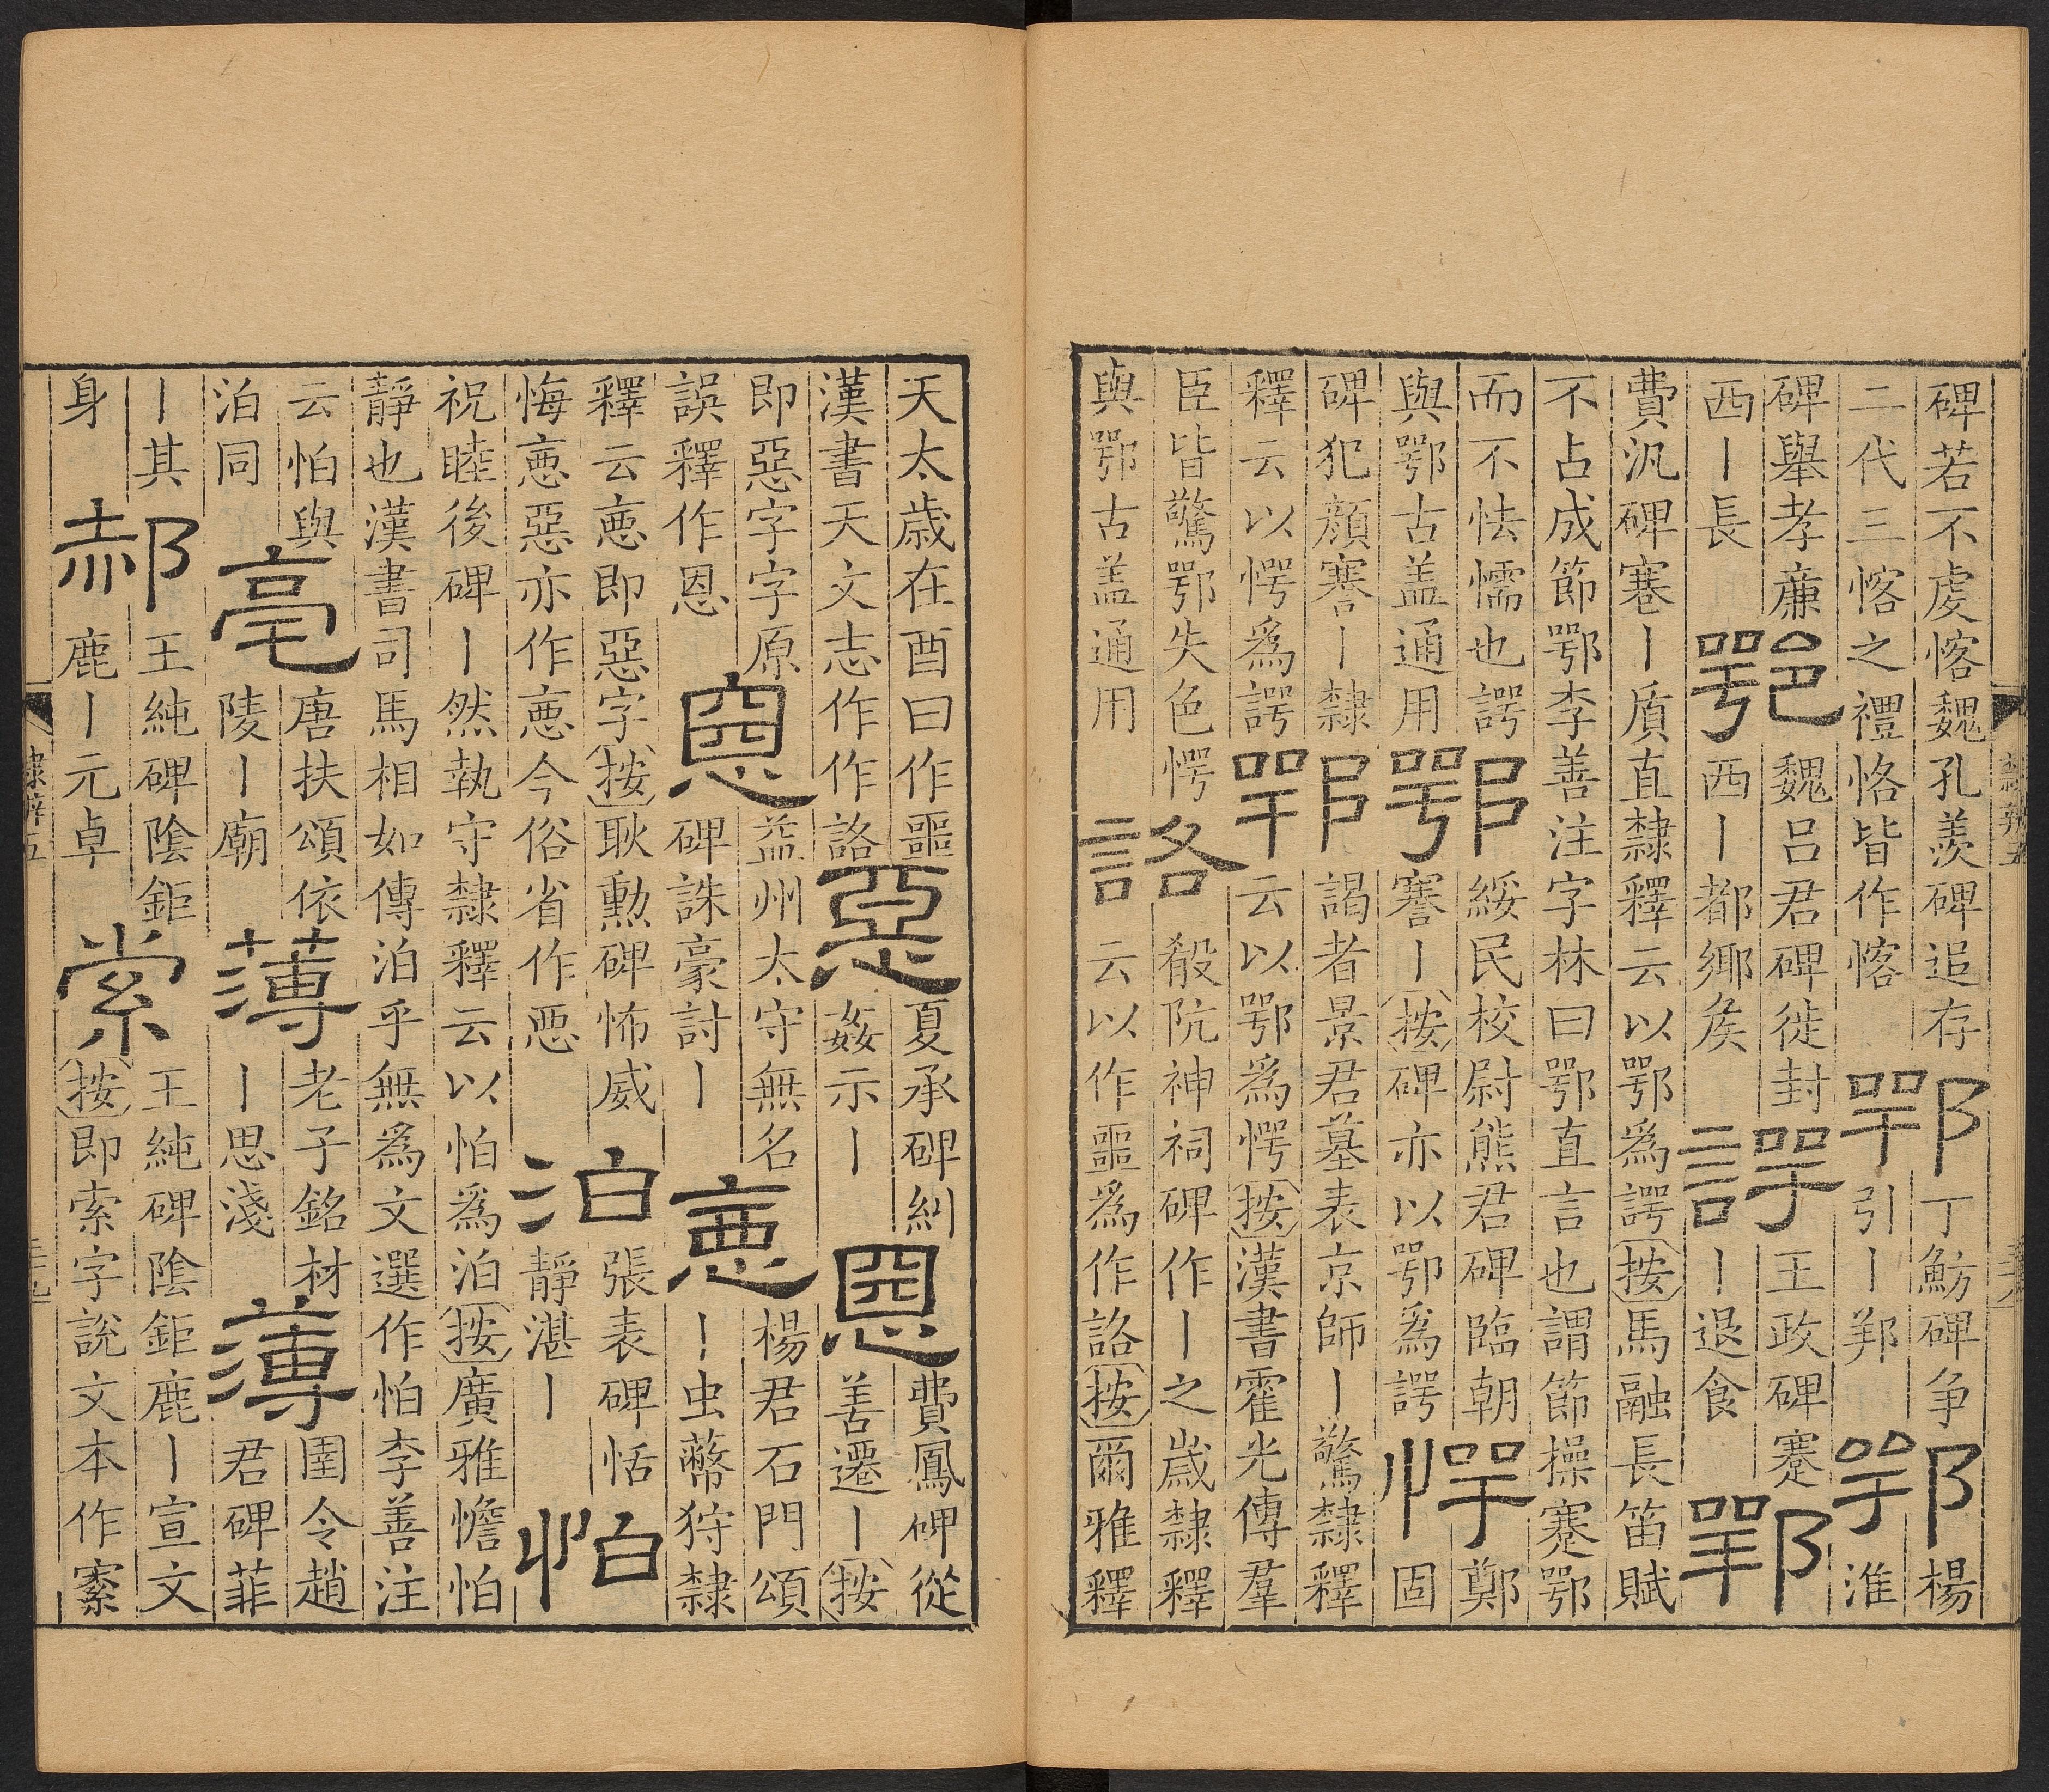 碑若不虔愘魏孔羨碑追存
二代三愘之禮恪皆作愘
鄂
丁魴碑争
引丨邦
鄂
楊
淮
碑舉孝廉
西丨長
鄂
魏呂君碑徙封
西丨都鄉矦
諤
王政碑蹇
丨退食
鄂
費汎碑蹇丨質直隸釋云以鄂爲諤按馬融長笛賦
不占成節鄂李善注字林曰鄂直言也謂節操蹇鄂
而不怯懦也諤
與鄂古盖通用
鄂
綏民校尉熊君碑臨朝
謇丨按碑亦以鄂爲諤
愕
鄭
固
碑犯顔謇丨隸
釋云以愕爲諤
鄂
謁者景君墓表京師丨驚隸釋
云以鄂爲愕按漢書霍光傳羣
臣皆驚鄂失色愕
與鄂古盖通用
詻
殽阬神祠碑作丨之嵗隸釋
云以作噩爲作詻按爾雅釋
天太歳在酉曰作噩
漢書天文志作作詻
惡
夏承碑糾
姦示丨
惡
費鳳碑從
善遷丨按
即惡字字原
誤釋作恩
惡
益州太守無名
碑誅豪討丨
惡
楊君石門頌
丨虫蔽狩隸
釋云悳即惡字按耿勳碑怖威
悔悳惡亦作悳今俗省作悪
泊
張表碑恬
靜湛丨
怕
祝睦後碑丨然執守隸釋云以怕爲泊按廣雅憺怕
靜也漢書司馬相如傳泊乎無爲文選作怕李善注
云怕與
泊同
亳
唐扶頌依
陵丨廟
薄
老子銘材
丨思淺
薄
圉令趙
君碑菲
丨其
身
郝
王純碑陰鉅
鹿丨元卓
索
王純碑陰鉅鹿丨宣文
按即索字說文本作𡩡
隸辨五